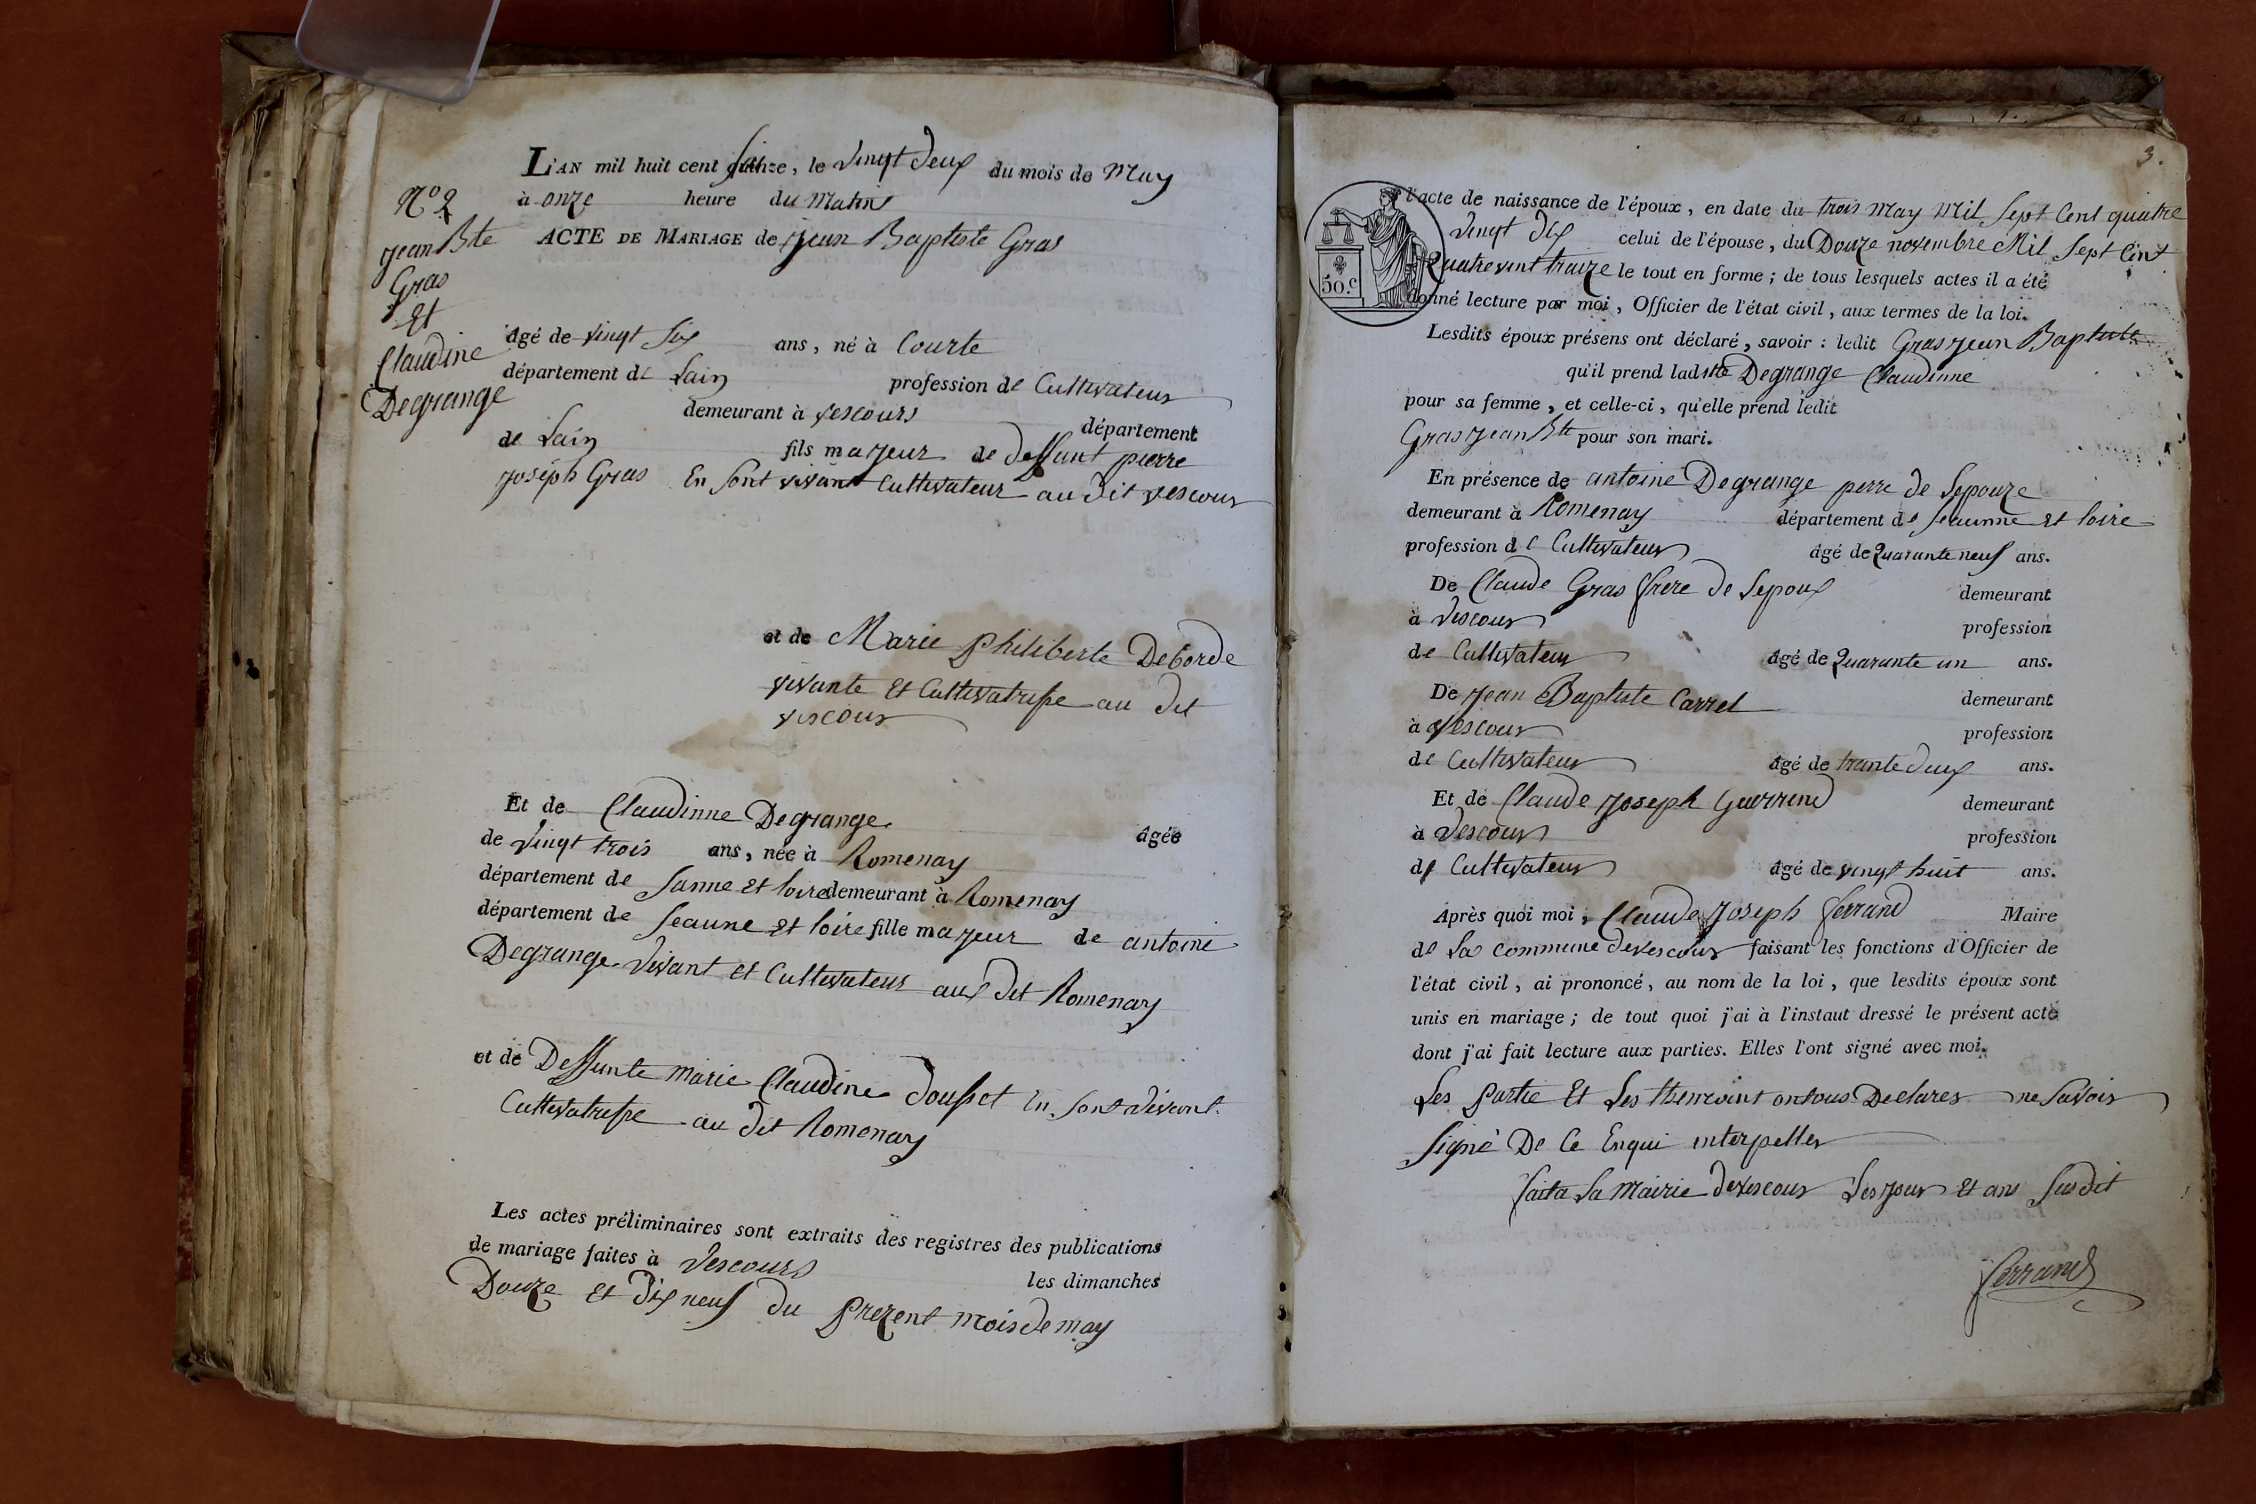 L'AN mil huit cent seize, le vingt deux du mois de may
à onze heure du matin
N° 2
jean Bte
Gras
Et
Claudine
Degrange
ACTE DE MARIAGE de jean Baptiste Gras
âgé de vingt six ans, né à Courte
département de Lain profession de Cultivateur
demeurant à vescours département
de Lain fils majeur de deffunt pierre
joseph Gras En sont vivant Cultivateur au dit vescour
et de Marie philiberte Deborde
vivante Et Cultivatrisse au dit
vescour
Et de Claudinne Degrange âgée
de vingt trois ans, née à Romenay
département de Sanne Et loire demeurant à Romenay
département de Seaune Et loire fille majeur de antoine
Degrange vivant et Cultivateur aux dit Romenay
et de Deffunte marie Claudine Dousset En sont vivant
Cultivatrisse au dit Romenay
Les actes préliminaires sont extraits des registres des publications
de mariage faites à Vescours les dimanches
Douze Et dix neuf du prezent mois de may
3.
50.c
l'acte de naissance de l'époux, en date du trois may mil sept Cent quatre
vingt dix celui de l'épouse, du Douze novembre Mil Sept Cent
Quatre vint traize le tout en forme; de tous lesquels actes il a été
donné lecture par moi, Officier de l'état civil, aux termes de la loi.
Lesdits époux présens ont déclaré, savoir : ledit Gras jean Baptiste
qu'il prend ladite Degrange Claudinne
pour sa femme, et celle-ci, qu'elle prend ledit
Gras jean Bte pour son mari.
En présence de antoine Degrange perre de Lepouze
demeurant à Romenay département de Seaunne Et loire
profession de Cultivateur âgé de Quarante neuf ans.
De Claude Gras frere de Lepoux demeurant
à Vescour profession
de Cultivateur âgé de Quarante un ans.
De jean Baptiste Carrel demeurant
à vescour profession
de Cultivateur âgé de trante deux ans.
Et de Claude joseph Guerrind demeurant
à Vescour profession
de Cultivateur âgé de vingt huit ans.
Après quoi moi, Claude joseph ferrand Maire
de La Commune de vescour faisant les fonctions d'Officier de
l'état civil, ai prononcé, au nom de la loi, que lesdits époux sont
unis en mariage; de tout quoi j'ai à l'instaut dressé le présent acte
dont j'ai fait lecture aux parties. Elles l'ont signé avec moi.
Les partie Et Les themoint on tous Declares ne Savoir
Signé De Ce Enqui interpeller
fait a La mairie de vescour Les jour Et ans Susdit
ferrand